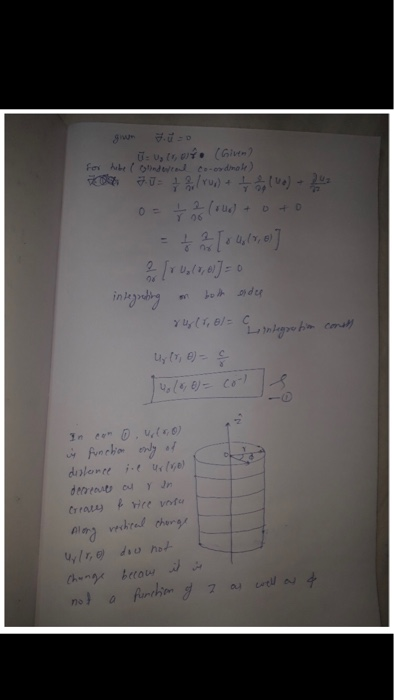 given ∇⃗.u⃗ = 0
u⃗ = ur(r,θ) r̂ (Given)
For tube (Cylinderical co-ordinate)
∇⃗.u⃗ = 1/r ∂/∂r (rur) + 1/r ∂/∂φ (uθ) + ∂uz/∂z
0 = 1/r ∂/∂r (rur) + 0 + 0
= 1/r ∂/∂r [r ur(r,θ)]
∂/∂r [r ur(r,θ)] = 0
integrating on both sides
r ur(r,θ) = C
↳ integration const
ur(r,θ) = C/r
ur(r,θ) = Cr⁻¹
—①
ẑ
In eqn ①, ur(r,θ)
r
is function only of
O θ
distance i.e ur(r,θ)
decreases as r in
creases & vice versa
Along vertical change
ur(r,θ) does not
change because it is
not a function of z as well as φ